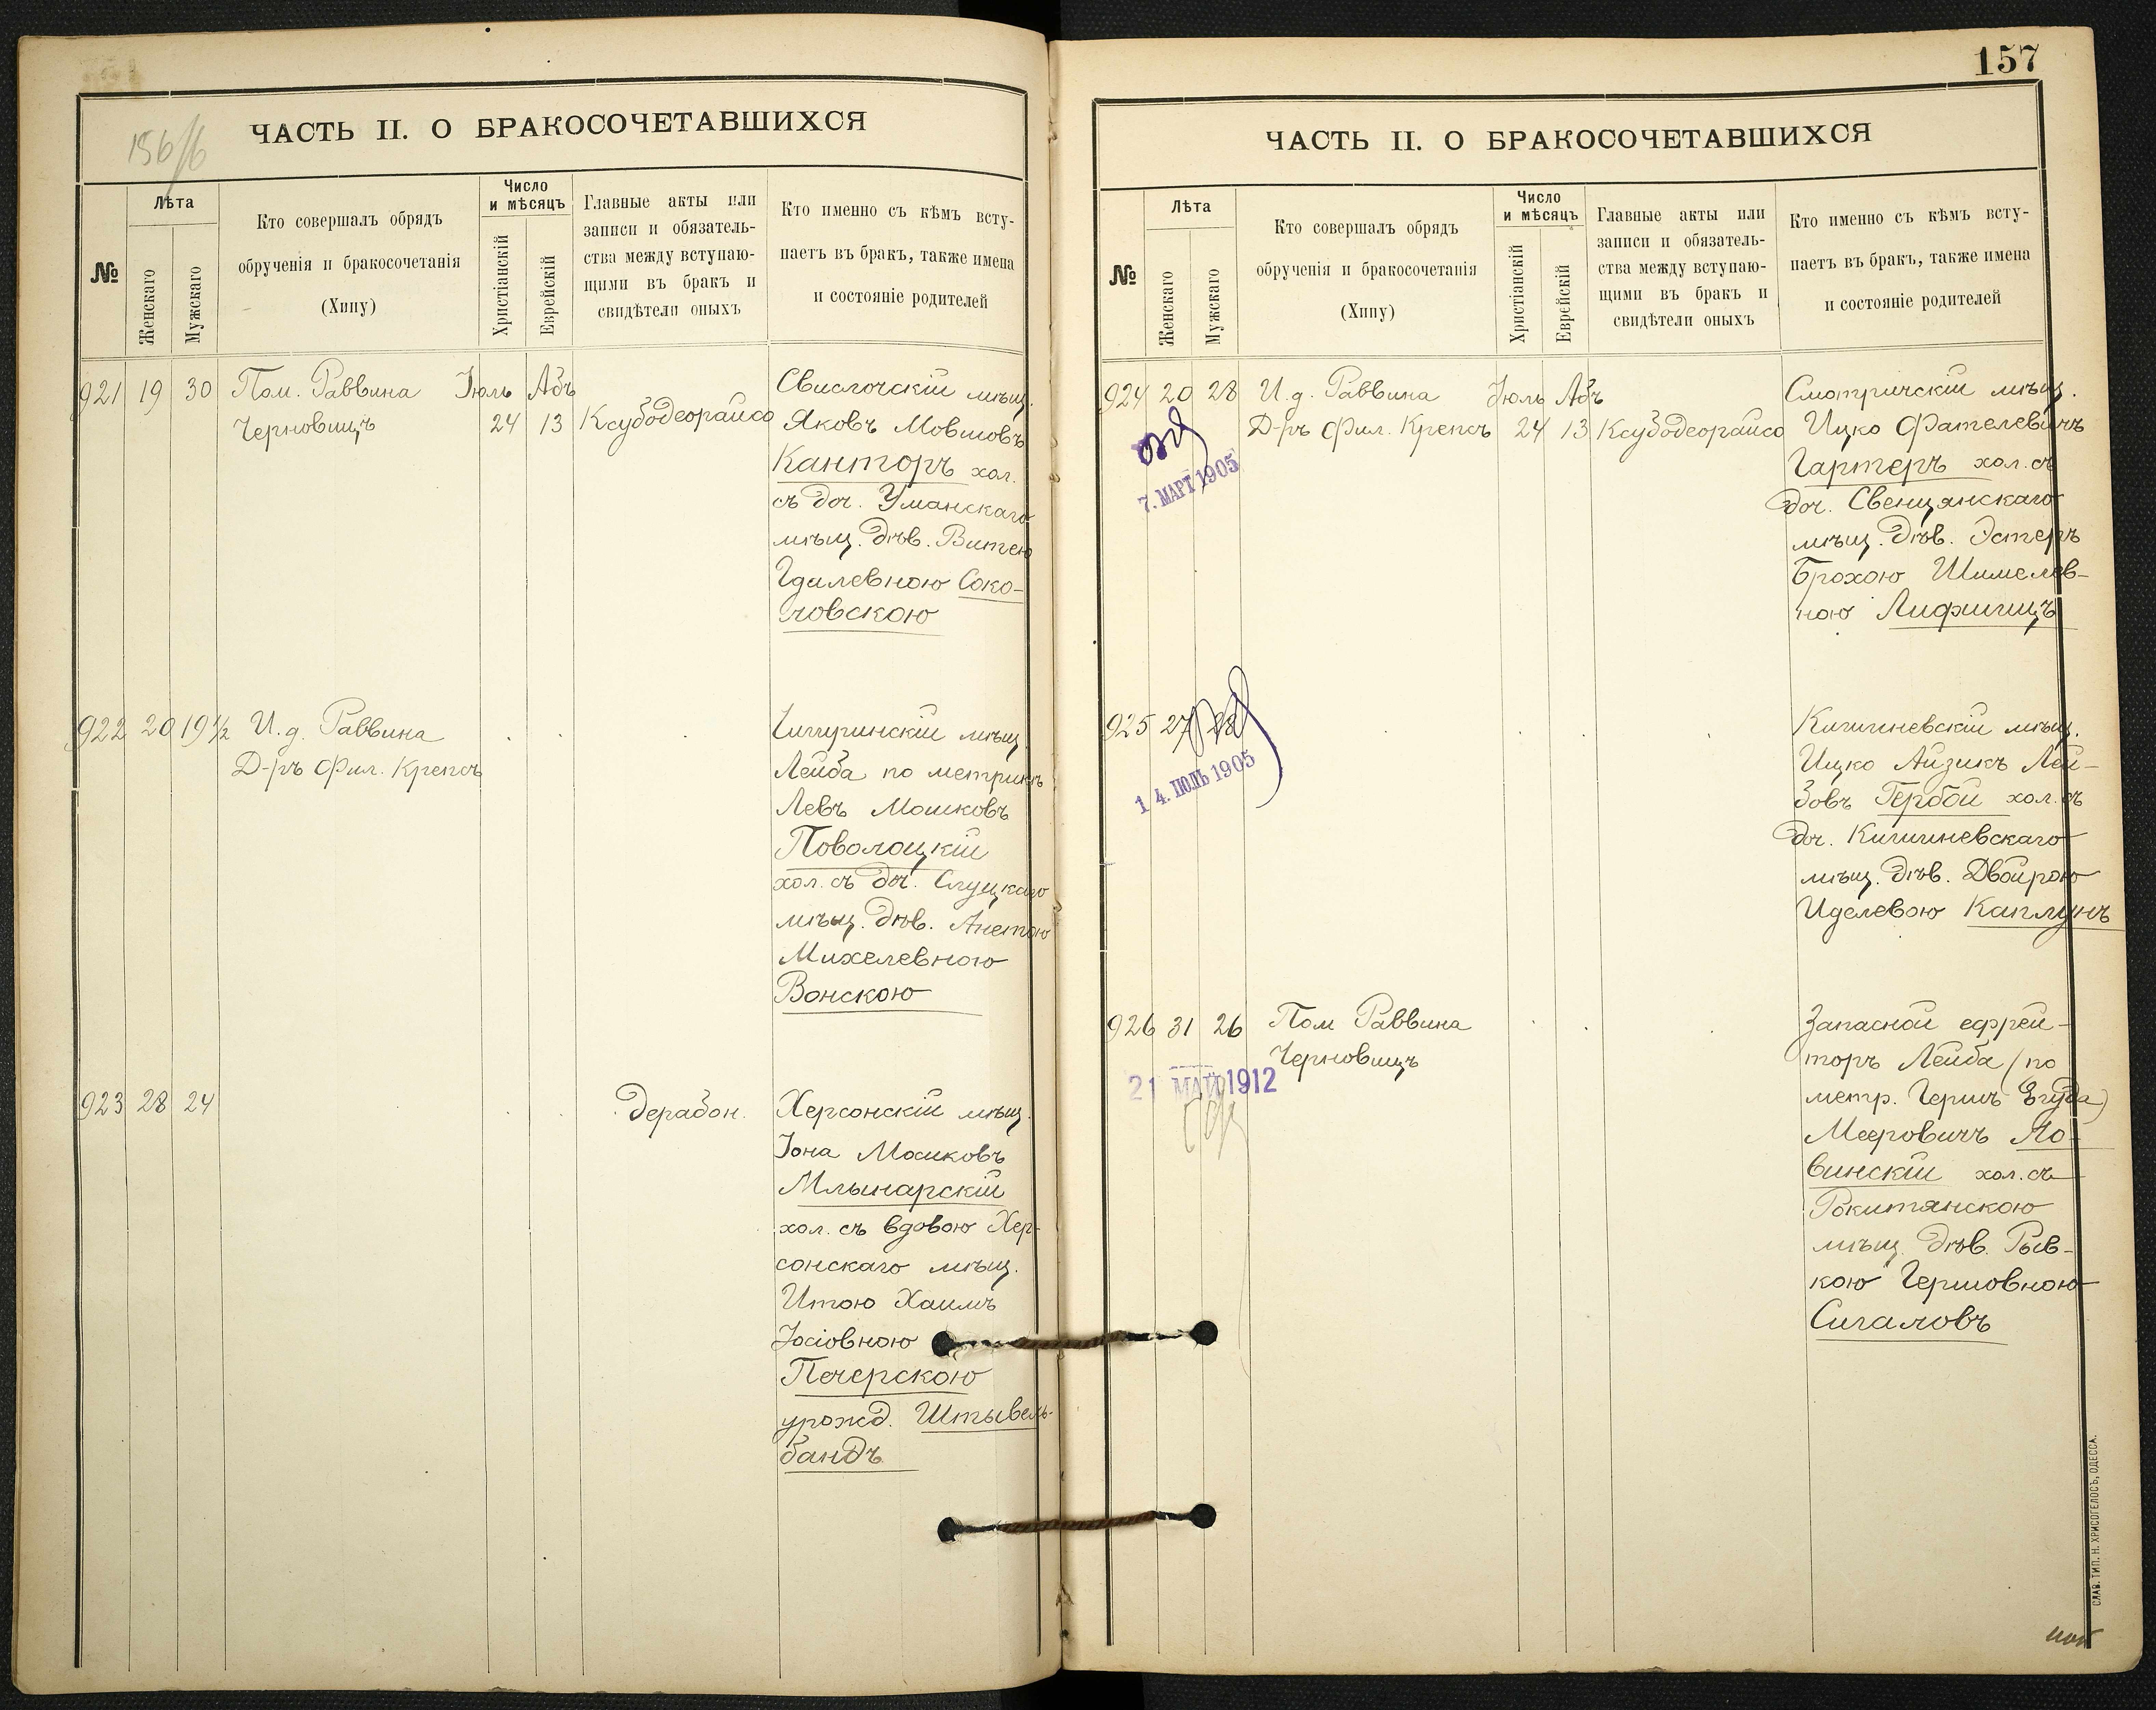 156/б
ЧАСТЬ II. О БРАКОСОЧЕТАВШИХСЯ
№
Лѣта
Женскаго
Мужскаго
Кто совершалъ обрядъ
обрученія и бракосочетанія
(Хипу)
Число
и мѣсяцъ
Христіанскій
Еврейскій
Главные акты или
записи и обязатель-
ства между вступаю-
щими въ бракъ и
свидѣтели оныхъ
Кто именно съ кѣмъ всту-
паетъ въ бракъ, также имена
и состояніе родителей
921 19 30 Пом. Раввина Іюль Абъ Свислочскій мѣщ.
Черновицъ 24 13 Ксубодеорайсо Яковъ Мовшовъ
Канторъ хол.
съ доч. Уманскаго
мѣщ. дѣв. Витею
Гдалевною Соко-
ловскою
922 20 19½ И. д. Раввина Чигиринскій мѣщ.
Д-ръ Фил. Крепсъ Лейба по метрикѣ
Левъ Мошковъ
Поволоцкій
хол. съ доч. Слуцкаго
мѣщ. дѣв. Анетою
Михелевною
Вонскою
923 28 24 Дерабон. Херсонскій мѣщ.
Іона Мошковъ
Млынарскій
хол. съ вдовою Хер-
сонскаго мѣщ.
Итою Хаимъ
Іосіовною
Печерскою
урожд. Штывель-
бандъ
157
ЧАСТЬ II. О БРАКОСОЧЕТАВШИХСЯ
№
Лѣта
Женскаго
Мужскаго
Кто совершалъ обрядъ
обрученія и бракосочетанія
(Хипу)
Число
и мѣсяцъ
Христіанскій
Еврейскій
Главные акты или
записи и обязатель-
ства между вступаю-
щими въ бракъ и
свидѣтели оныхъ
Кто именно съ кѣмъ всту-
паетъ въ бракъ, также имена
и состояніе родителей
924 20 28 И. д. Раввина Іюль Абъ Смотричскій мѣщ.
Д-ръ Фил. Крепсъ 24 13 Ксубодеорайсо Ицко Фателевичъ
7. МАРТ 1905
Гартеръ хол. съ
доч. Свенцянскаго
мѣщ. дѣв. Эстеръ
Брохою Шимелев-
ною Лифшицъ
925 27 28 Кишиневскій мѣщ.
14. ІЮЛЬ 1905
Ицко Айзикъ Лей-
зовъ Гербой хол. съ
доч. Кишиневскаго
мѣщ. дѣв. Двойрою
Иделевою Каплунъ
926 31 26 Пом Раввина Запасной ефрей-
Черновицъ торъ Лейба (по
21 МАЙ 1912
метр. Гершъ Егуда)
Мееровичъ Ло-
винскій хол. съ
Рокитянскою
мѣщ. дѣв. Рыв-
кою Гершовною
Сигаловъ
СЛАВ. ТИП. Н. ХРИСОГЕЛОСЪ, ОДЕССА.